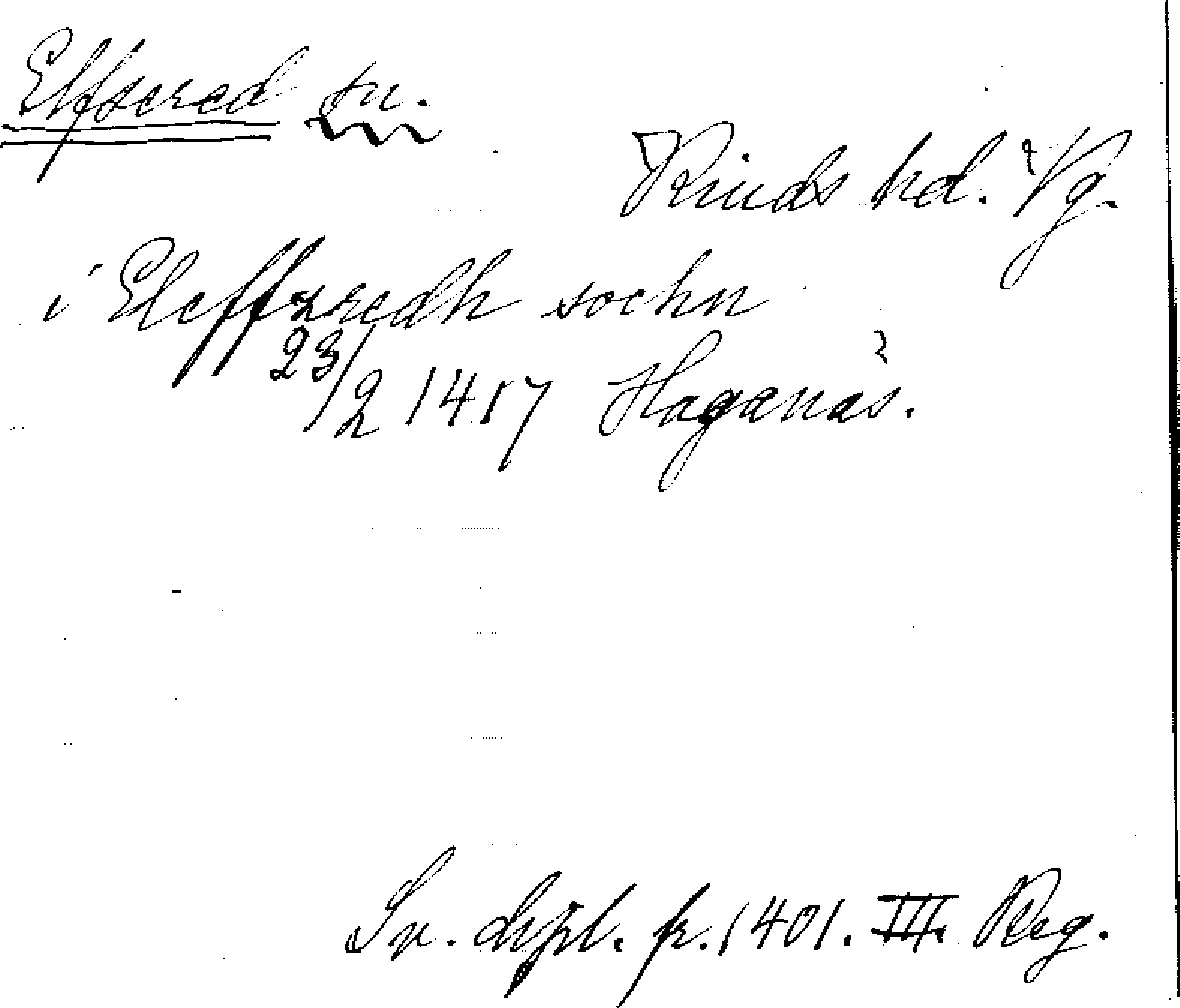 Elfsered sn.
Kinds hd. Vg.
i Eleffzredh sochn
23/2 1417 Haganäs.
Sv. dipl. fr. 1401. III. Reg.